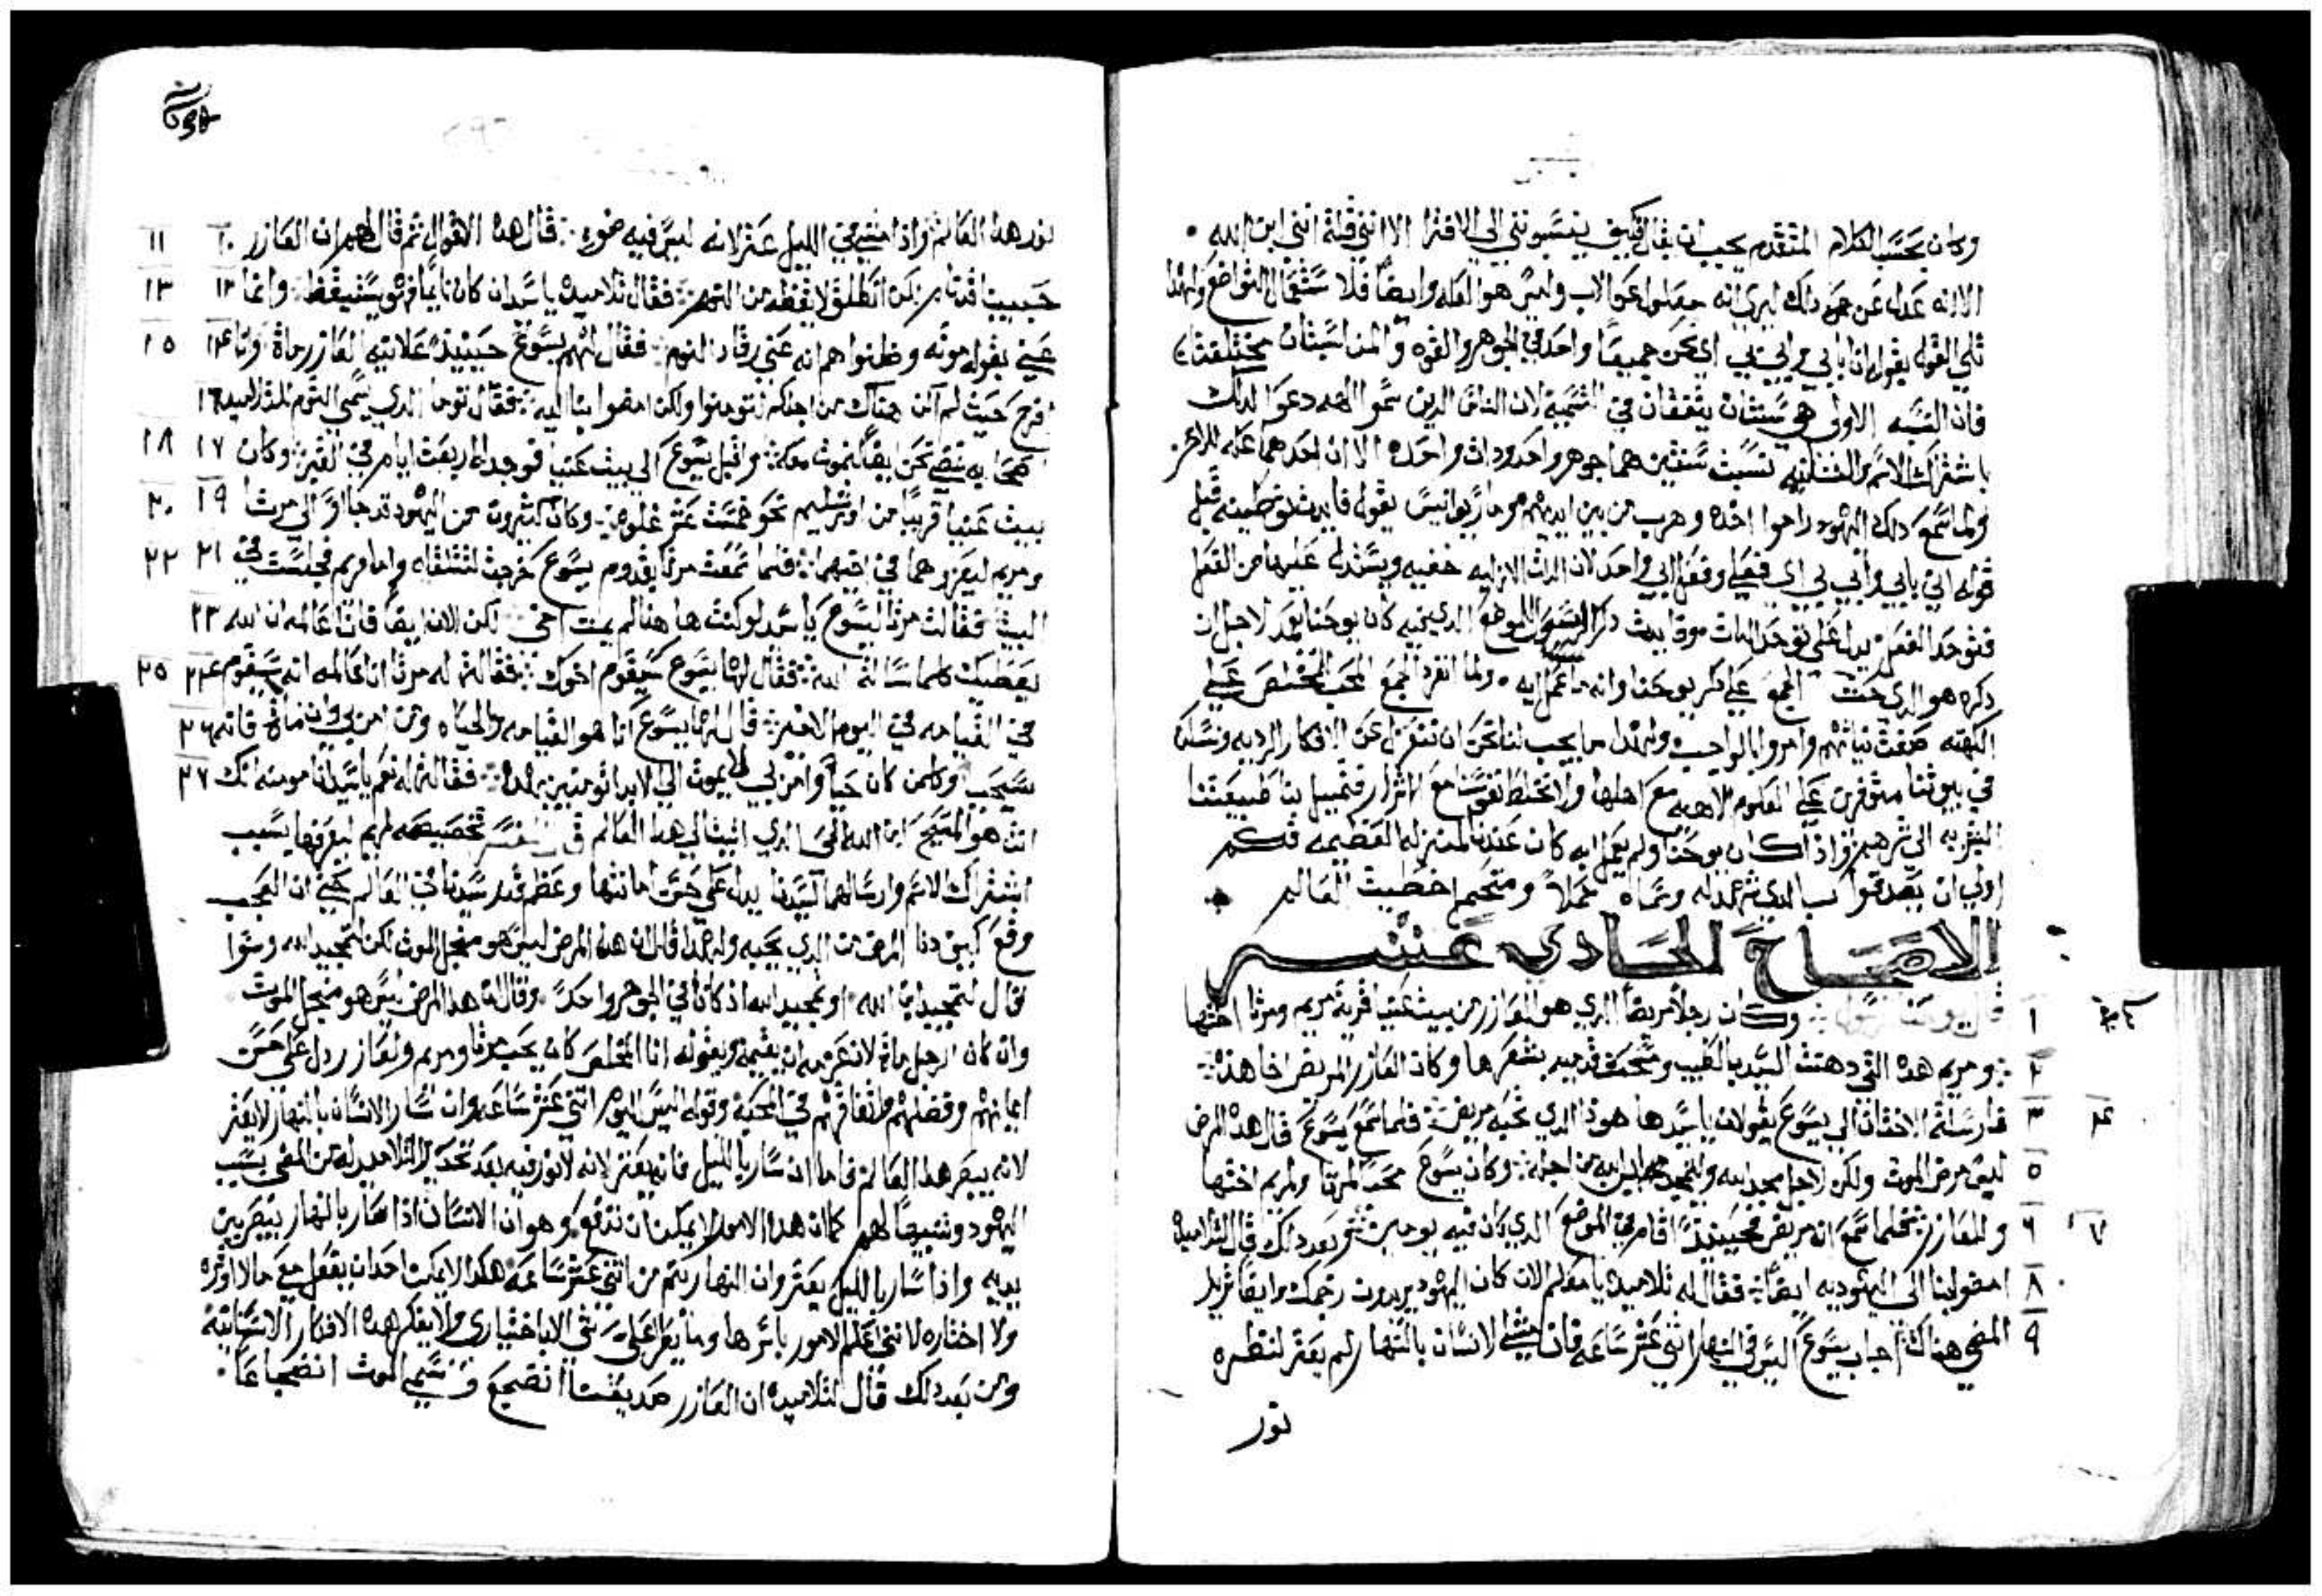 وكان بحسب الكلام المتقدم يجب ان يقال فكيف ينسبونني الي الافترا الا انني قلة انني ابن الله
الا انه عدل عن ذلك ليري انه معلول عن الاب وليس هو العله وايضا فلا ستعمال التواضع ولهذا
تلي القول بقوله انا بابي وابي بي اي نحن جميعا واحد في الجوهر والقوه والمناسبتان مختلفتان
فان النسبه الاولي هي سنتان يتفقان في التسمية لان الناس الدين سموا الهه دعوا لدلك
باشتراك الاسم والثانيه نسبت شيئين هما جوهر واحد ودات واحده الا ان احدهما عله للاخر
ولما سمع دلك اليهود راموا اخده وهرب من بين ايديهم ومار يوانيس يقول
قوله اني بابي وابي بي اي فعلي وفعل ابي واحد لان الدات الالهيه خفيه ويستدل عليها من الفعل
فتوحد الفعل يدل علي توحد الدات دكر الرسول الموضع الدي فيه كان يوحنا يعمد لاجل ان
دكره هو الدي حث الجمع علي دكر يوحنا وانه ما عمل ايه ولما انفرد الجمع المحب المخلص علي
الكهنه صفت نياتهم وامنوا بالواجب ولهدا ما يجب لنا نحن ان ننعزل عن الافكار الرديه ونسكن
في بيوتنا متوفرين علي العلوم الالاهيه مع اهلها ولا نخلط نفوسنا مع الاشرار فتميل بنا طبيعتنا
البشريه الي شرهم واذا كان يوحنا ولم يعمل ايه كان عندنا بالمنزله العظيمه فكم
اولي ان يصدقوا بالدي شهد له وسماه حملا ومتحمل خطيت العالم
الاصحاح الحادي عشر
١ قال يوحنا الرسول وكان رجلا مريضا الدي هو العازر من بيت عنيا قرية مريم ومرتا اختها
٢ ومريم هده التي دهنت السيد بالطيب ومسحت قدميه بشعرها وكان العازر المريض اخا هده
٣ ٤ فارسلة الاختان الي يسوع يقولان ياسيد ها هودا الدي تحبه مريض فلما سمع يسوع قال هدا المرض
٥ ليس مرض الموت ولكن لاجل مجد الله وليتمجد ابن الله من اجله وكان يسوع محبا لمرتا ولمريم اختها
٦ ٧ ولعازر فلما سمع انه مريض حينيدا اقام في الموضع الدي كان فيه يومين ثم بعد دلك قال لتلاميده
٨ امضوا بنا الي اليهوديه ايضا فقال له تلاميده يا معلم الان كان اليهود يريدون رجمك وايضا تريد
٩ المضي هناك اجاب يسوع اليس في النهار اثني عشر ساعه فان مشي الانسان بالنهار لم يعتر لنظره
نور
نور هدا العالم واذا مشي في الليل عتر لانه ليس فيه ضو قال هدا الاقوال ثم قال لهم ان العازر ١٠ ١١
حبيبنا قد نام لكن انطلق لايقظه من النوم فقال تلاميده ياسيد ان كان نايما فهو يستيقظ وانما ١٢ ١٣
عني بقوله موته وظنوا هم انه عني رقاد النوم فقال لهم يسوع حينيدا علانيه لعازر ماة وانا ١٤ ١٥
افرح حيت لم اكن هناك من اجلكم لتومنوا ولكن امضوا بنا اليه فقال توما الدي يسمي التوم للتلاميد ١٦
اصحابه نمضي نحن ايضا لنموت معه واقبل يسوع الي بيت عنيا فوجد له اربعت ايام في القبر وكان ١٧ ١٨
بيت عنيا قريبا من اورشليم نحو خمست عشر غلوه وكان كثيرون من اليهود قد جاوا الي مرتا ١٩ ٢٠
ومريم ليعزوهما في اخيهما فلما سمعت مرتا بقدوم يسوع خرجت لتتلقاه واما مريم فجلست في ٢١ ٢٢
البيت فقالت مرتا ليسوع يا سيد لو كنت ها هنا لم يمت اخي لكن الان ايضا فانا عالمه ان الله ٢٣
يعطيك كلما سالت الله فقال لها يسوع سيقوم اخوك فقالت له مرتا انا عالمه انه سيقوم ٢٤ ٢٥
في القيامه في اليوم الاخير قال لها يسوع انا هو القيامه والحياه ومن امن بي وان ماة فانه ٢٦
سيحيى وكلمن كان حيا وامن بي لا يموت الي الابد اتومنين بهدا فقالت له نعم ياسيد انا مومنه انك ٢٧
انت هو المسيح ابن الله الحي الدي اتيت الي هدا العالم تخصيصه لمريم ليعرفها بسبب
اشتراك الاسم وارسالهما لسيدنا يدل علي حسن امانتها وعظم قدر سيدنا في العالم حتي ان العجب
وقع كيف دنا المرض من الدي يحبه ولهدا قال ان هدا المرض ليس هو من اجل الموت لكن لتمجيد الله وسوا
نقال لتمجيد ابن الله او تمجيد الله اذ كانا في الجوهر واحدا وقال ان هدا المرض ليس هو من اجل الموت
وان كان الرجل ماة لان عزمه ان يقيمه وبقوله ان المخلص كان يحب مرتا ومريم ولعازر دل علي حسن
ايمانهم وفضلهم واتفاقهم في المحبة وقوله اليس اليوم اتني عشر ساعه وان سار الانسان بالنهار لا يعتر
لانه يبصر هدا العالم فاما ان سار بالليل فانه يعتر لانه لا نور فيه بعد تحدير التلاميد له من المضي بسبب
اليهود وتثبيطا لهم كما ان هدا الامور لا يمكن ان ترتفع وهو ان الانسان اذا سار بالنهار يبصر بين
يديه واذا سار بالليل يعتر وان النهار يتم من اتني عشر ساعه هكدا لا يمكن احدا ان يفعل معي ما لا اوتره
ولا اختاره لانني اعلم الامور باسرها وما يعرا علي شي الا باختياري ولا يفكر هده الافكار الانسانية
ومن بعد دلك قال لتلاميده ان العازر صديقنا انضجع وتسمي الموت انضجاعا